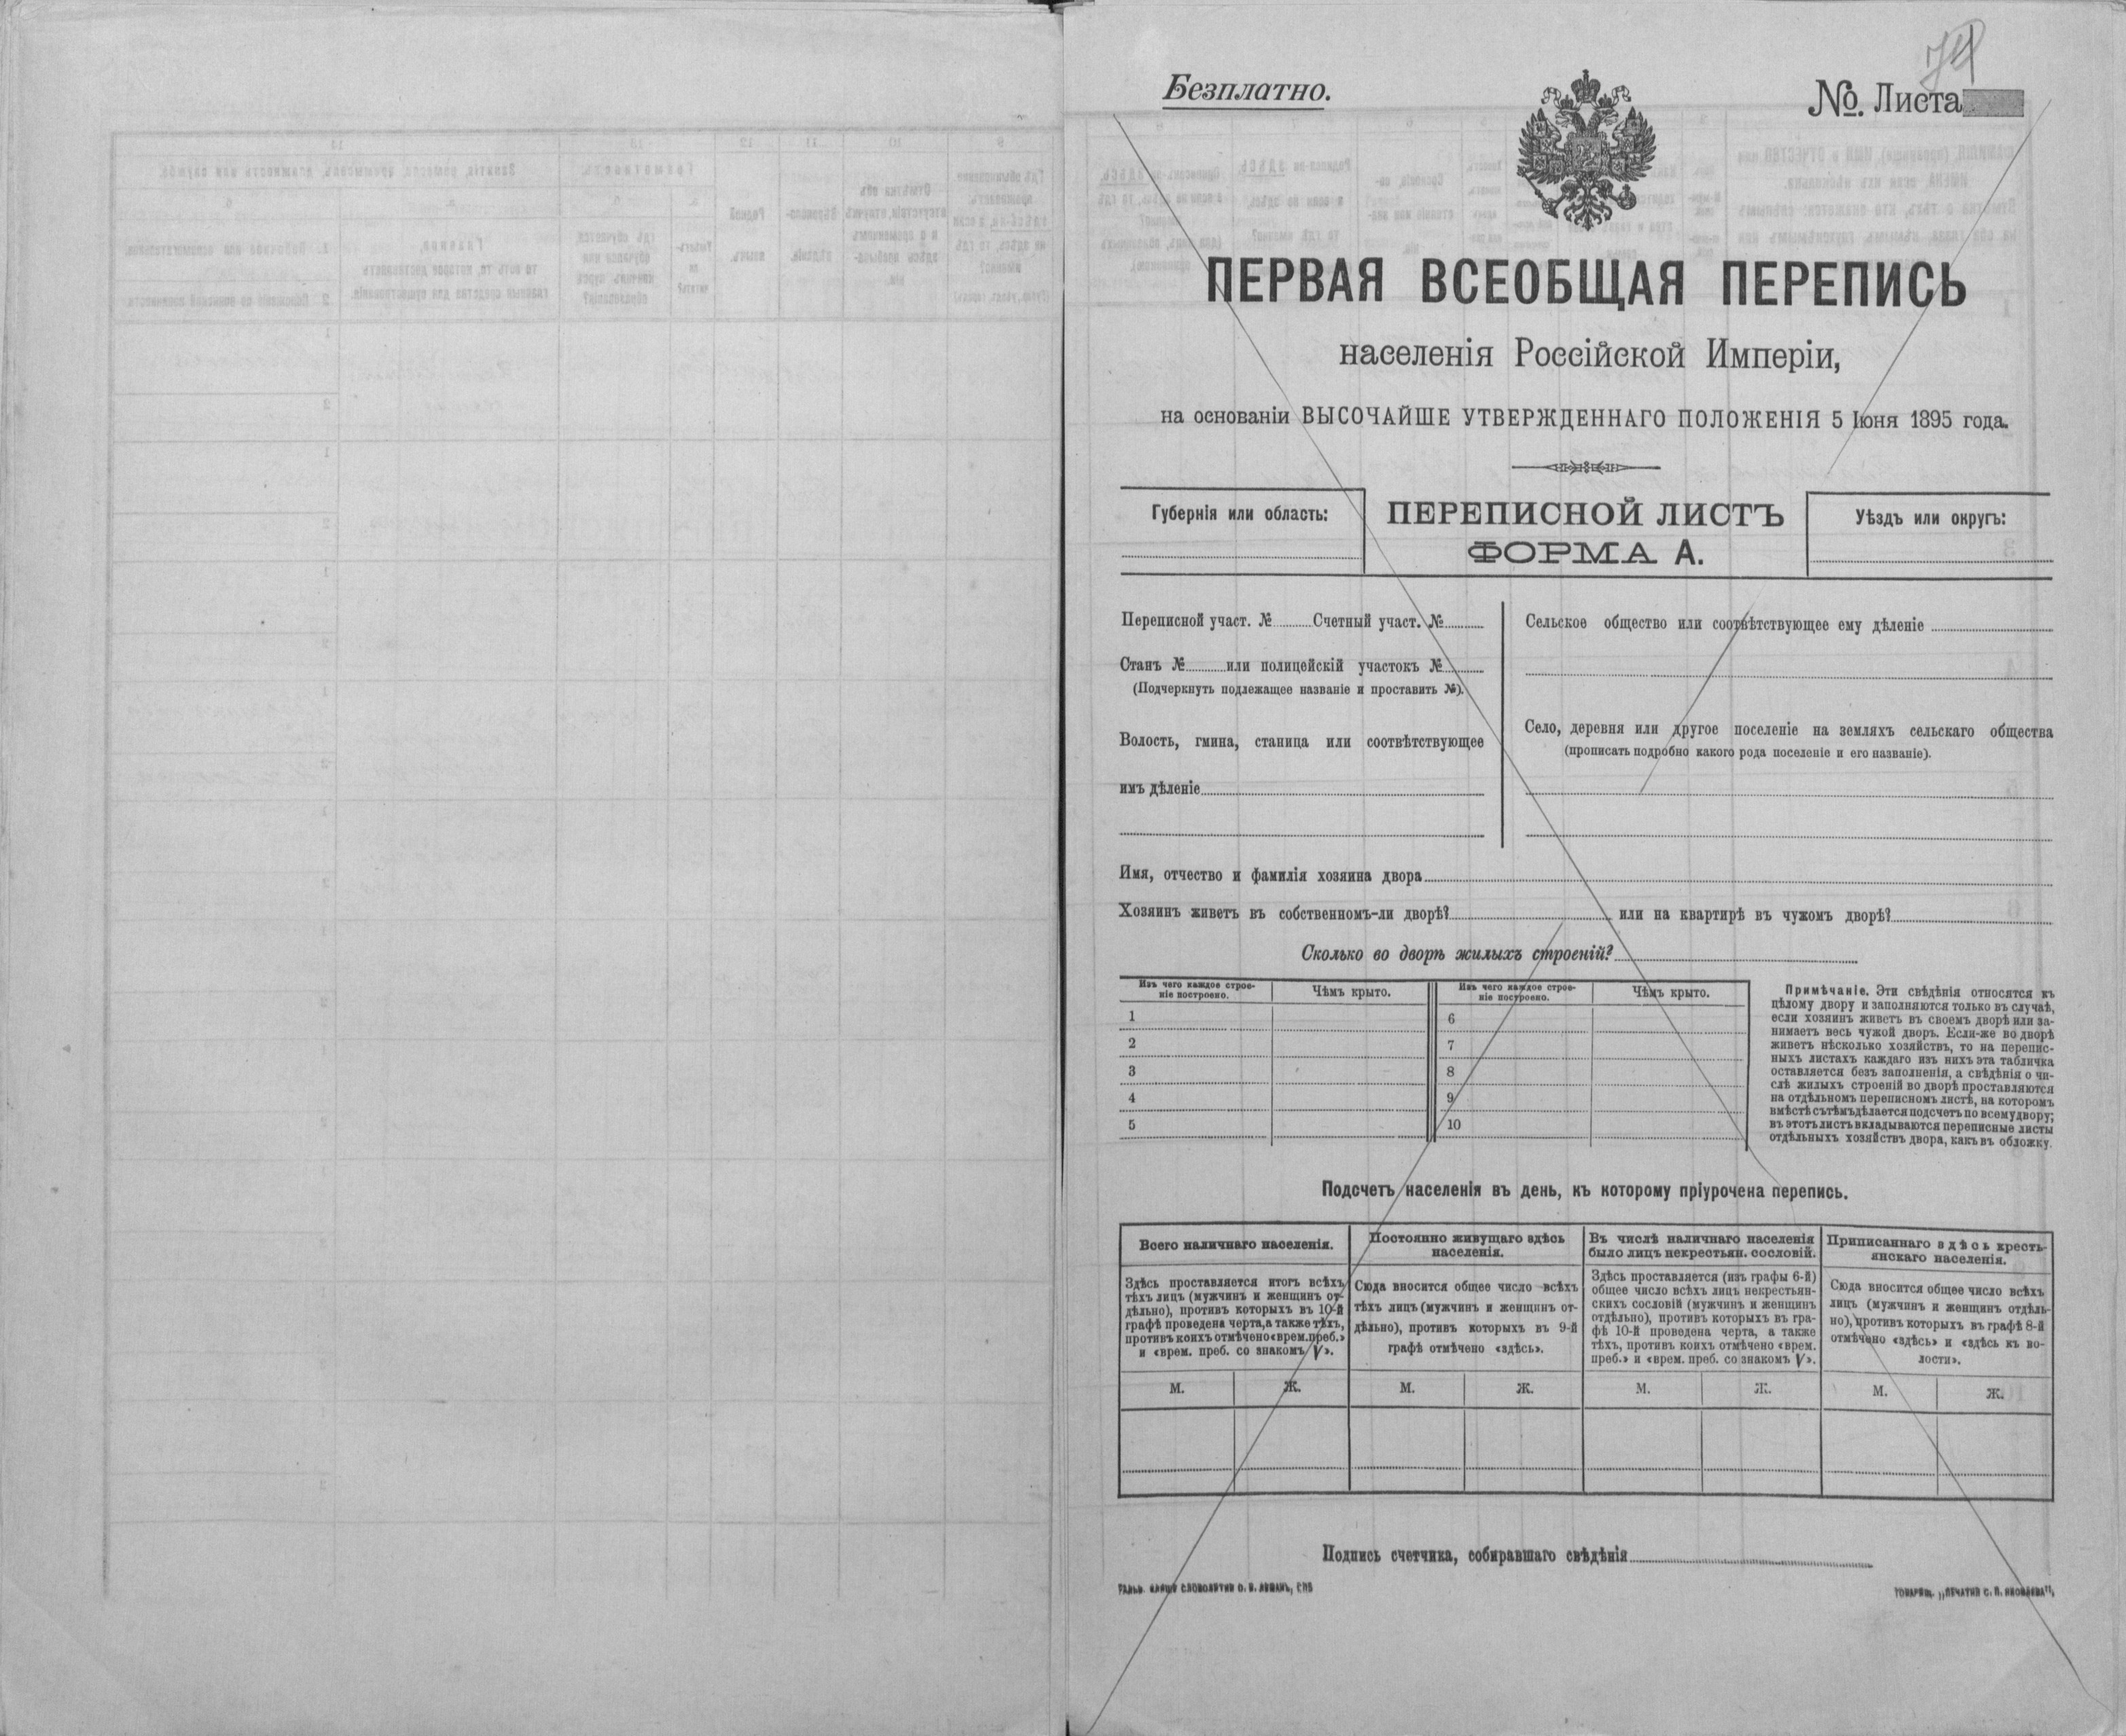 Безплатно.
№ Листа
ПЕРВАЯ ВСЕОБЩАЯ ПЕРЕПИСЬ
населенія Россійской Имперіи,
на основаніи ВЫСОЧАЙШЕ УТВЕРЖДЕННАГО ПОЛОЖЕНІЯ 5 Іюня 1895 года.
Губернія или область:
ПЕРЕПИСНОЙ ЛИСТЪ
ФОРМА А.
Уѣздъ или округъ:
Переписной участ. № Счетный участ. №
Станъ № или полицейскій участокъ №
(Подчеркнуть подлежащее названіе и проставить №).
Волость, гмина, станица или соотвѣтствующее
имъ дѣленіе
Сельское общество или соотвѣтствующее ему дѣленіе
Село, деревня или другое поселеніе на земляхъ сельскаго общества
(прописать подробно какого рода поселеніе и его названіе).
Имя, отчество и фамилія хозяина двора
Хозяинъ живетъ въ собственномъ-ли дворѣ? или на квартирѣ въ чужомъ дворѣ?
Сколько во дворѣ жилыхъ строеній?
Изъ чего каждое строе-
ніе построено.
Чѣмъ крыто.
Изъ чего каждое строе-
ніе построено.
Чѣмъ крыто.
1
2
3
4
5
6
7
8
9
10
Примѣчаніе. Эти свѣдѣнія относятся къ
цѣлому двору и заполняются только въ случаѣ,
если хозяинъ живетъ въ своемъ дворѣ или за-
нимаетъ весь чужой дворъ. Если-же во дворѣ
живетъ нѣсколько хозяйствъ, то на перепис-
ныхъ листахъ каждаго изъ нихъ эта табличка
оставляется безъ заполненія, а свѣдѣнія о чи-
слѣ жилыхъ строеній во дворѣ проставляются
на отдѣльномъ переписномъ листѣ, на которомъ
вмѣстѣ съ тѣмъ дѣлается подсчетъ по всему двору;
въ этотъ листъ вкладываются переписные листы
отдѣльныхъ хозяйствъ двора, какъ въ обложку.
Подсчетъ населенія въ день, къ которому пріурочена перепись.
Всего наличнаго населенія.
Здѣсь проставляется итогъ всѣхъ
тѣхъ лицъ (мужчинъ и женщинъ от-
дѣльно), противъ которыхъ въ 10-й
графѣ проведена черта, а также тѣхъ,
противъ коихъ отмѣчено «врем. преб.»
и «врем. преб. со знакомъ V».
М.
Ж.
Постоянно живущаго здѣсь
населенія.
Сюда вносится общее число всѣхъ
тѣхъ лицъ (мужчинъ и женщинъ от-
дѣльно), противъ которыхъ въ 9-й
графѣ отмѣчено «здѣсь».
М.
Ж.
Въ числѣ наличнаго населенія
было лицъ некрестьян. сословій.
Здѣсь проставляется (изъ графы 6-й)
общее число всѣхъ лицъ некрестьян-
скихъ сословій (мужчинъ и женщинъ
отдѣльно), противъ которыхъ въ гра-
фѣ 10-й проведена черта, а также
тѣхъ, противъ коихъ отмѣчено «врем.
преб.» и «врем. преб. со знакомъ V».
М.
Ж.
Приписаннаго здѣсь кресть-
янскаго населенія.
Сюда вносится общее число всѣхъ
лицъ (мужчинъ и женщинъ отдѣль-
но), противъ которыхъ въ графѣ 8-й
отмѣчено «здѣсь» и «здѣсь къ во-
лости».
М.
Ж.
Подпись счетчика, собиравшаго свѣдѣнія